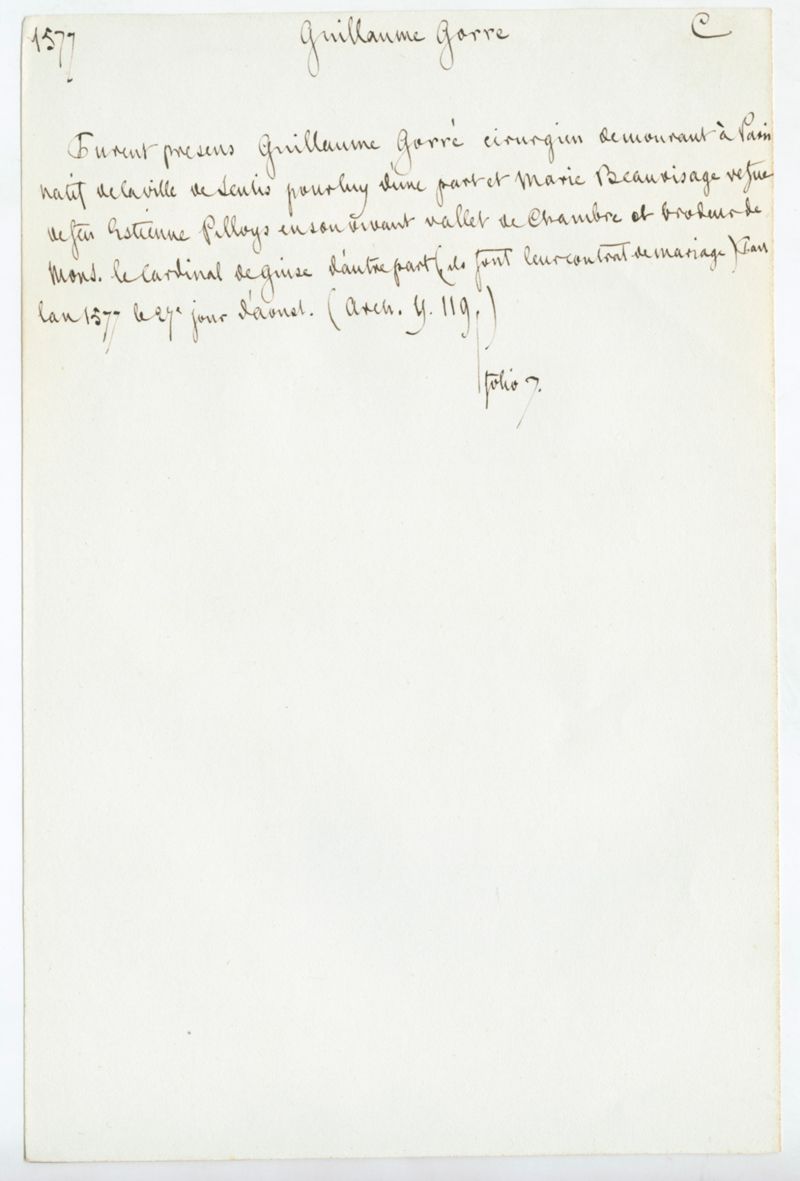 1577 Guillaume Gorre C
Furent presens Guillaume Gorré cirurgien demourant à Paris
natif de la ville de Senlis pour luy d'une part et Marie Beauvisage vefue
de feu Estienne Pilloys en son vivant vallet de Chambre et brodeur de
Mons. le Cardinal de Guise d'autre part (ils font leur contrat de mariage) Fan
lan 1577 le 27e jour d'aoust. (Arch. Y. 119.)
folio 7.